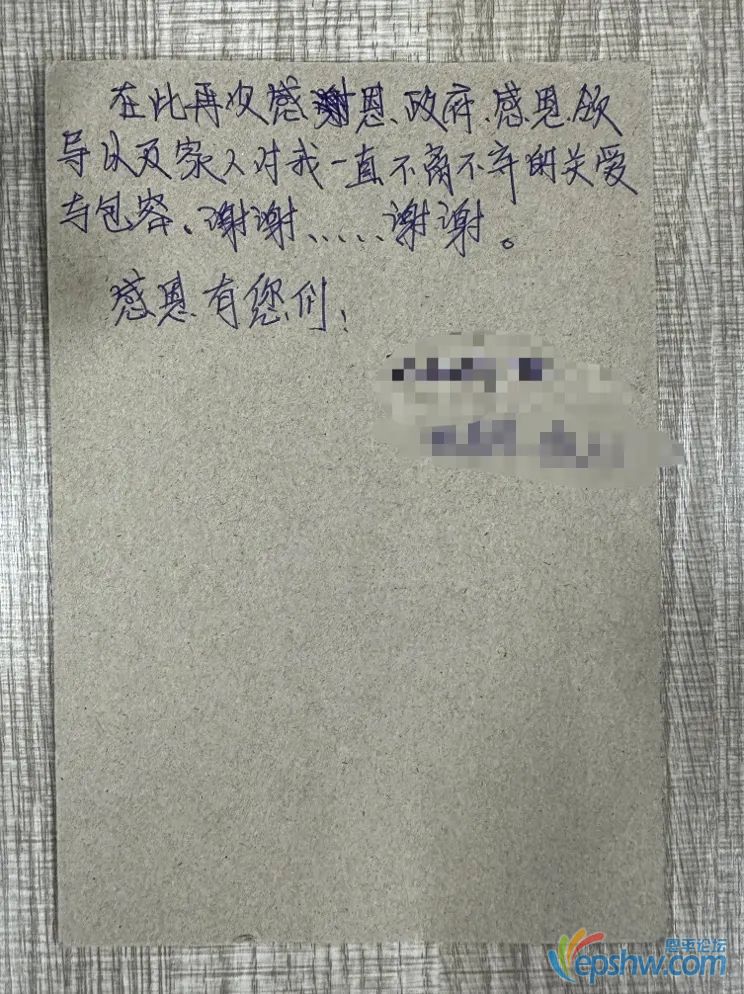 在此再次感恩、政府、感恩、领
导以及家人对我一直不离不弃的关爱
与包容、谢谢、、、、、谢谢。
感恩有您们！
恩平论坛
epshw.com